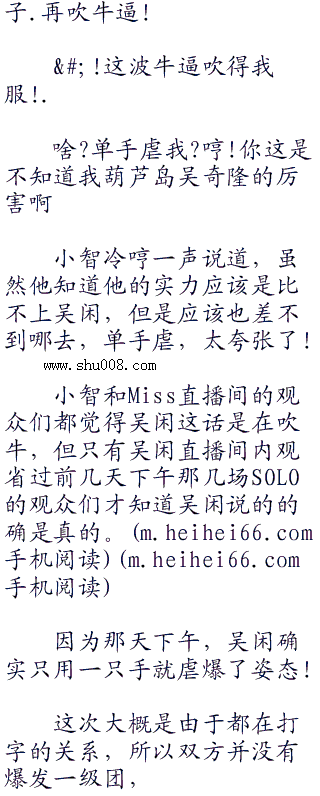 子.再吹牛逼!
&#;!这波牛逼吹得我
服!.
啥?单手虐我?哼!你这是
不知道我葫芦岛吴奇隆的厉
害啊
小智冷哼一声说道，虽
然他知道他的实力应该是比
不上吴闲，但是应该也差不
到哪去，单手虐，太夸张了!
www.shu008.com
小智和Miss直播间的观
众们都觉得吴闲这话是在吹
牛，但只有吴闲直播间内观
省过前几天下午那几场SOLO
的观众们才知道吴闲说的的
确是真的。(m.heihei66.com
手机阅读)(m.heihei66.com
手机阅读)
因为那天下午，吴闲确
实只用一只手就虐爆了姿态!
这次大概是由于都在打
字的关系，所以双方并没有
爆发一级团，